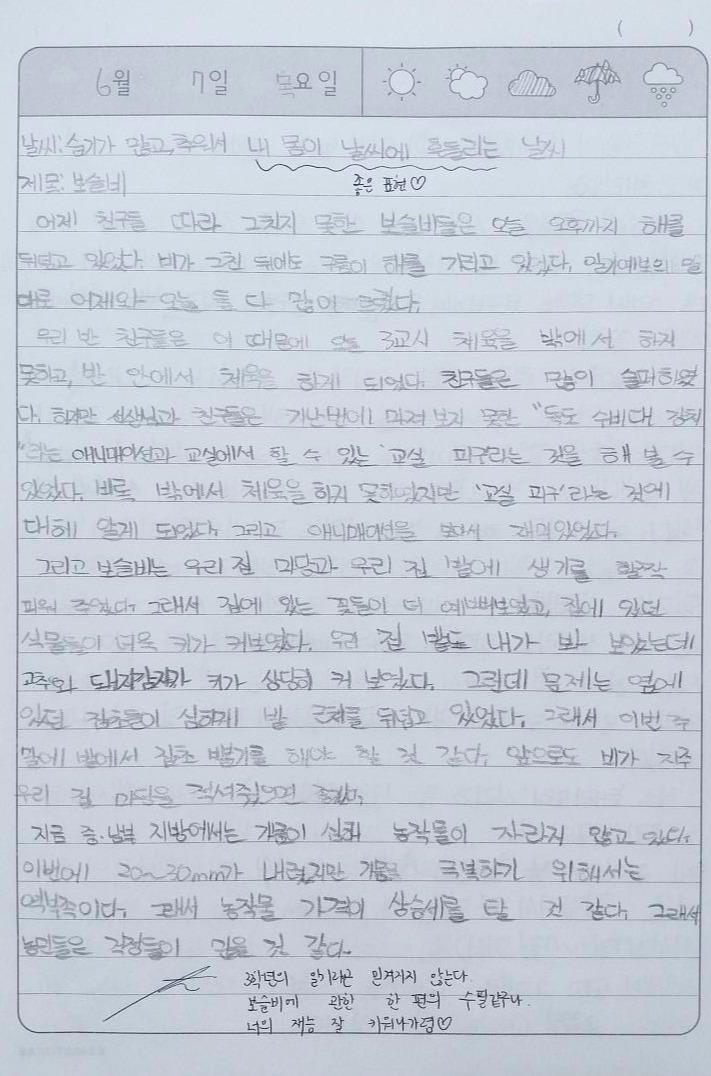 ( )
6월 7일 목요일
날씨: 습기가 많고, 추워서 내 몸이 날씨에 흔들리는 날씨
좋은 표현♡
제목: 보슬비
어제 친구들 따라 그치지 못한 보슬비들은 오늘 오후까지 해를
뒤덮고 있었다. 비가 그친 뒤에도 구름이 해를 가리고 있었다. 일기예보의 말
대로 어제와 오늘 둘 다 많이 흐렸다.
우리 반 친구들은 이 때문에 오늘 3교시 체육을 밖에서 하지
못하고, 반 안에서 체육을 하게 되었다. 친구들은 많이 슬퍼하였
다. 하지만 선생님과 친구들은 지난번에 마저 보지 못한 "독도 수비대 강치
"라는 애니메이션과 교실에서 할 수 있는 '교실 피구'라는 것을 해 볼 수
있었다. 비록 밖에서 체육을 하지 못하였지만 '교실 피구'라는 것에
대해 알게 되었다. 그리고 애니메이션을 보아서 재미있었다.
그리고 보슬비는 우리 집 마당과 우리 집 밭에 생기를 활짝
피워 주었다. 그래서 집에 있는 꽃들이 더 예뻐보였고, 집에 있던
식물들이 더욱 키가 커보였다. 우리 집 밭도 내가 봐 보았는데
고추와 돼지감자가 키가 상당히 커 보였다. 그런데 문제는 옆에
있던 잡초들이 심하게 밭 근처를 뒤덮고 있었다. 그래서 이번 주
말에 밭에서 잡초 뽑기를 해야 할 것 같다. 앞으로도 비가 자주
우리 집 마당을 적셔주었으면 좋겠다.
지금 중·남부 지방에서는 가뭄이 심해 농작물이 자라지 않고 있다.
이번에 20~30mm가 내렸지만 가뭄을 극복하기 위해서는
역부족이다. 그래서 농작물 가격이 상승세를 탈 것 같다. 그래서
농민들은 걱정들이 많을 것 같다.
3학년의 일기라곤 믿겨지지 않는다.
보슬비에 관한 한 편의 수필같구나.
너의 재능 잘 키워나가렴♡